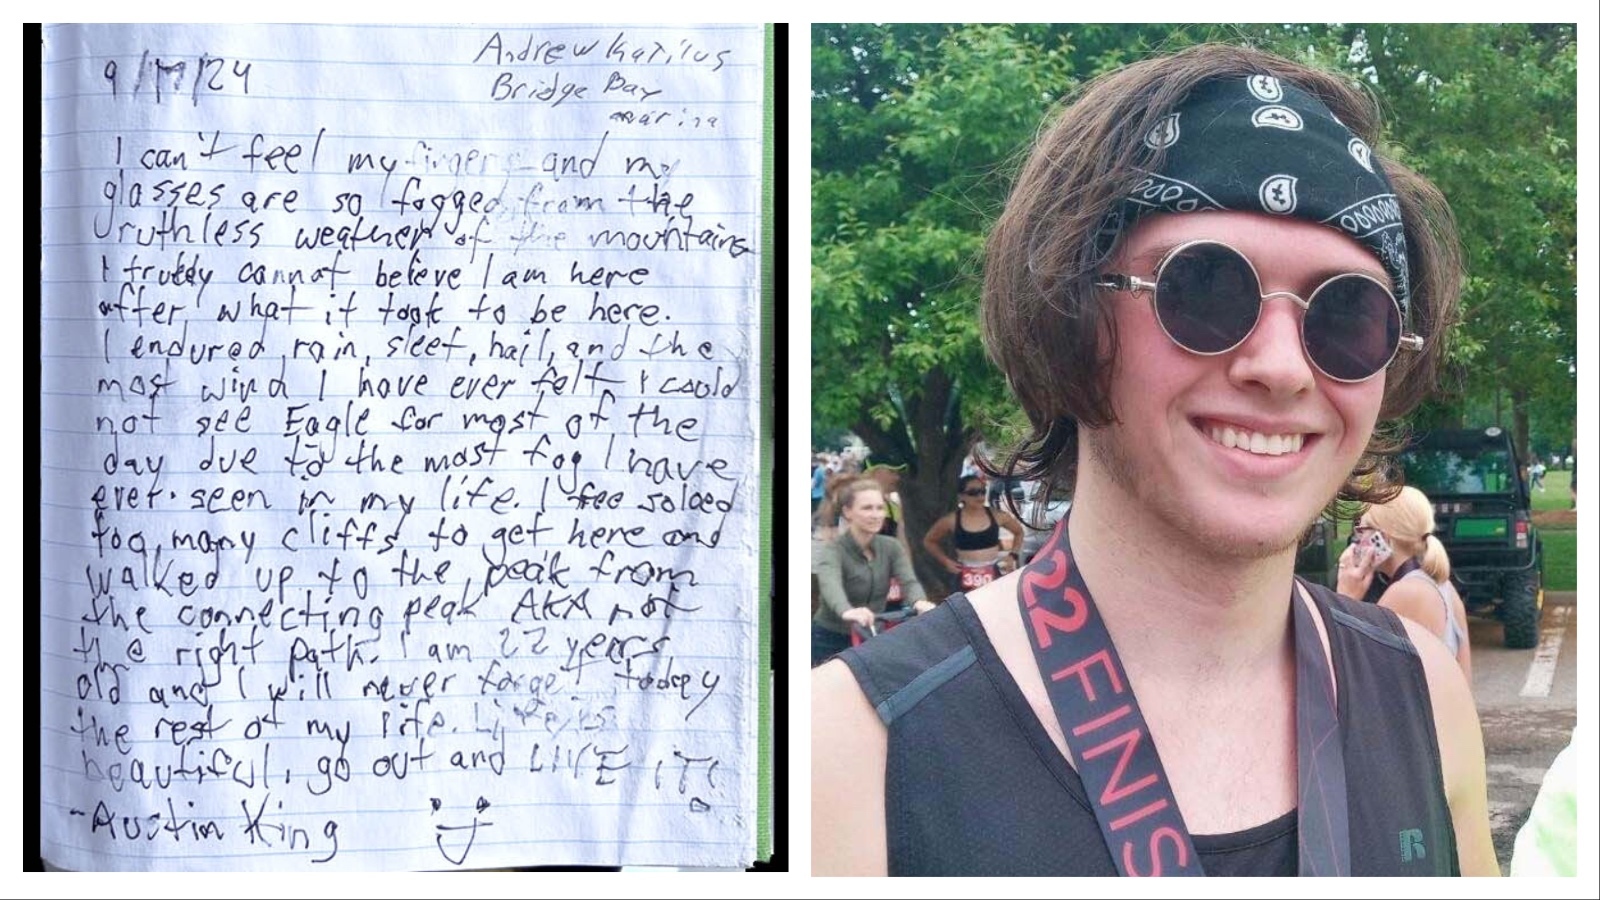 9/17/24
Andrew
Bridge Bay
marina
I can't feel my fingers and my
glasses are so fogged from the
ruthless weather of the mountains
I truely cannot believe I am here
after what it took to be here.
I endured rain, sleet, hail, and the
most wind I have ever felt I could
not see Eagle for most of the
day due to the most fog I have
ever seen in my life. I free soloed
too many cliffs to get here and
walked up to the peak from
the connecting peak AKA not
the right path. I am 22 years
old and I will never forget today
the rest of my life. Life is
beautiful, go out and LIVE IT!
-Austin King
22 FINIS
390
R